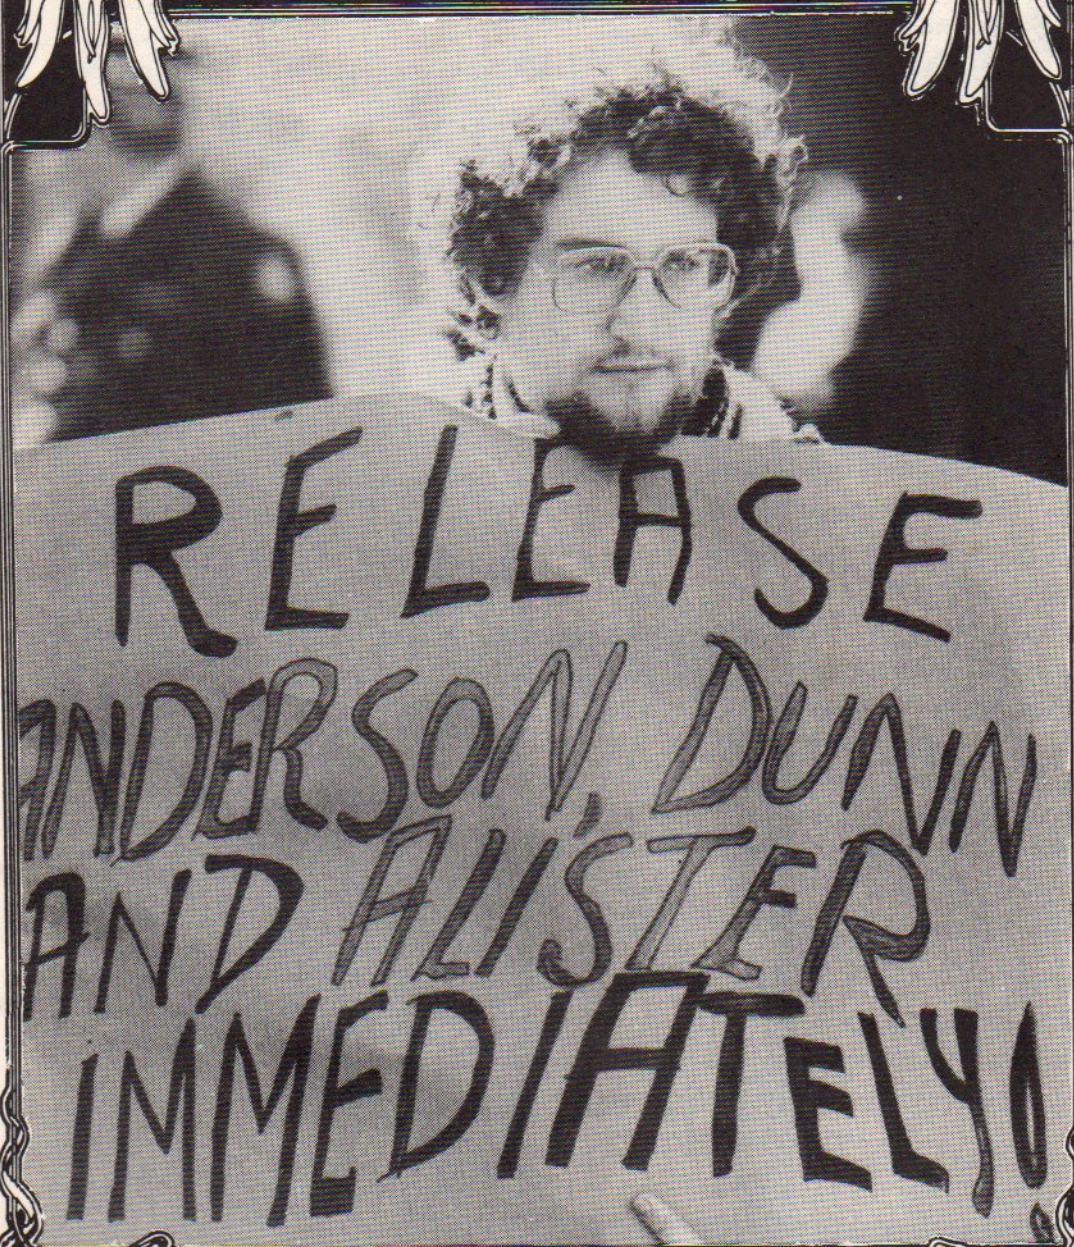 RELEASE
ANDERSON, DUNN
AND ALISTER
IMMEDIATELY!